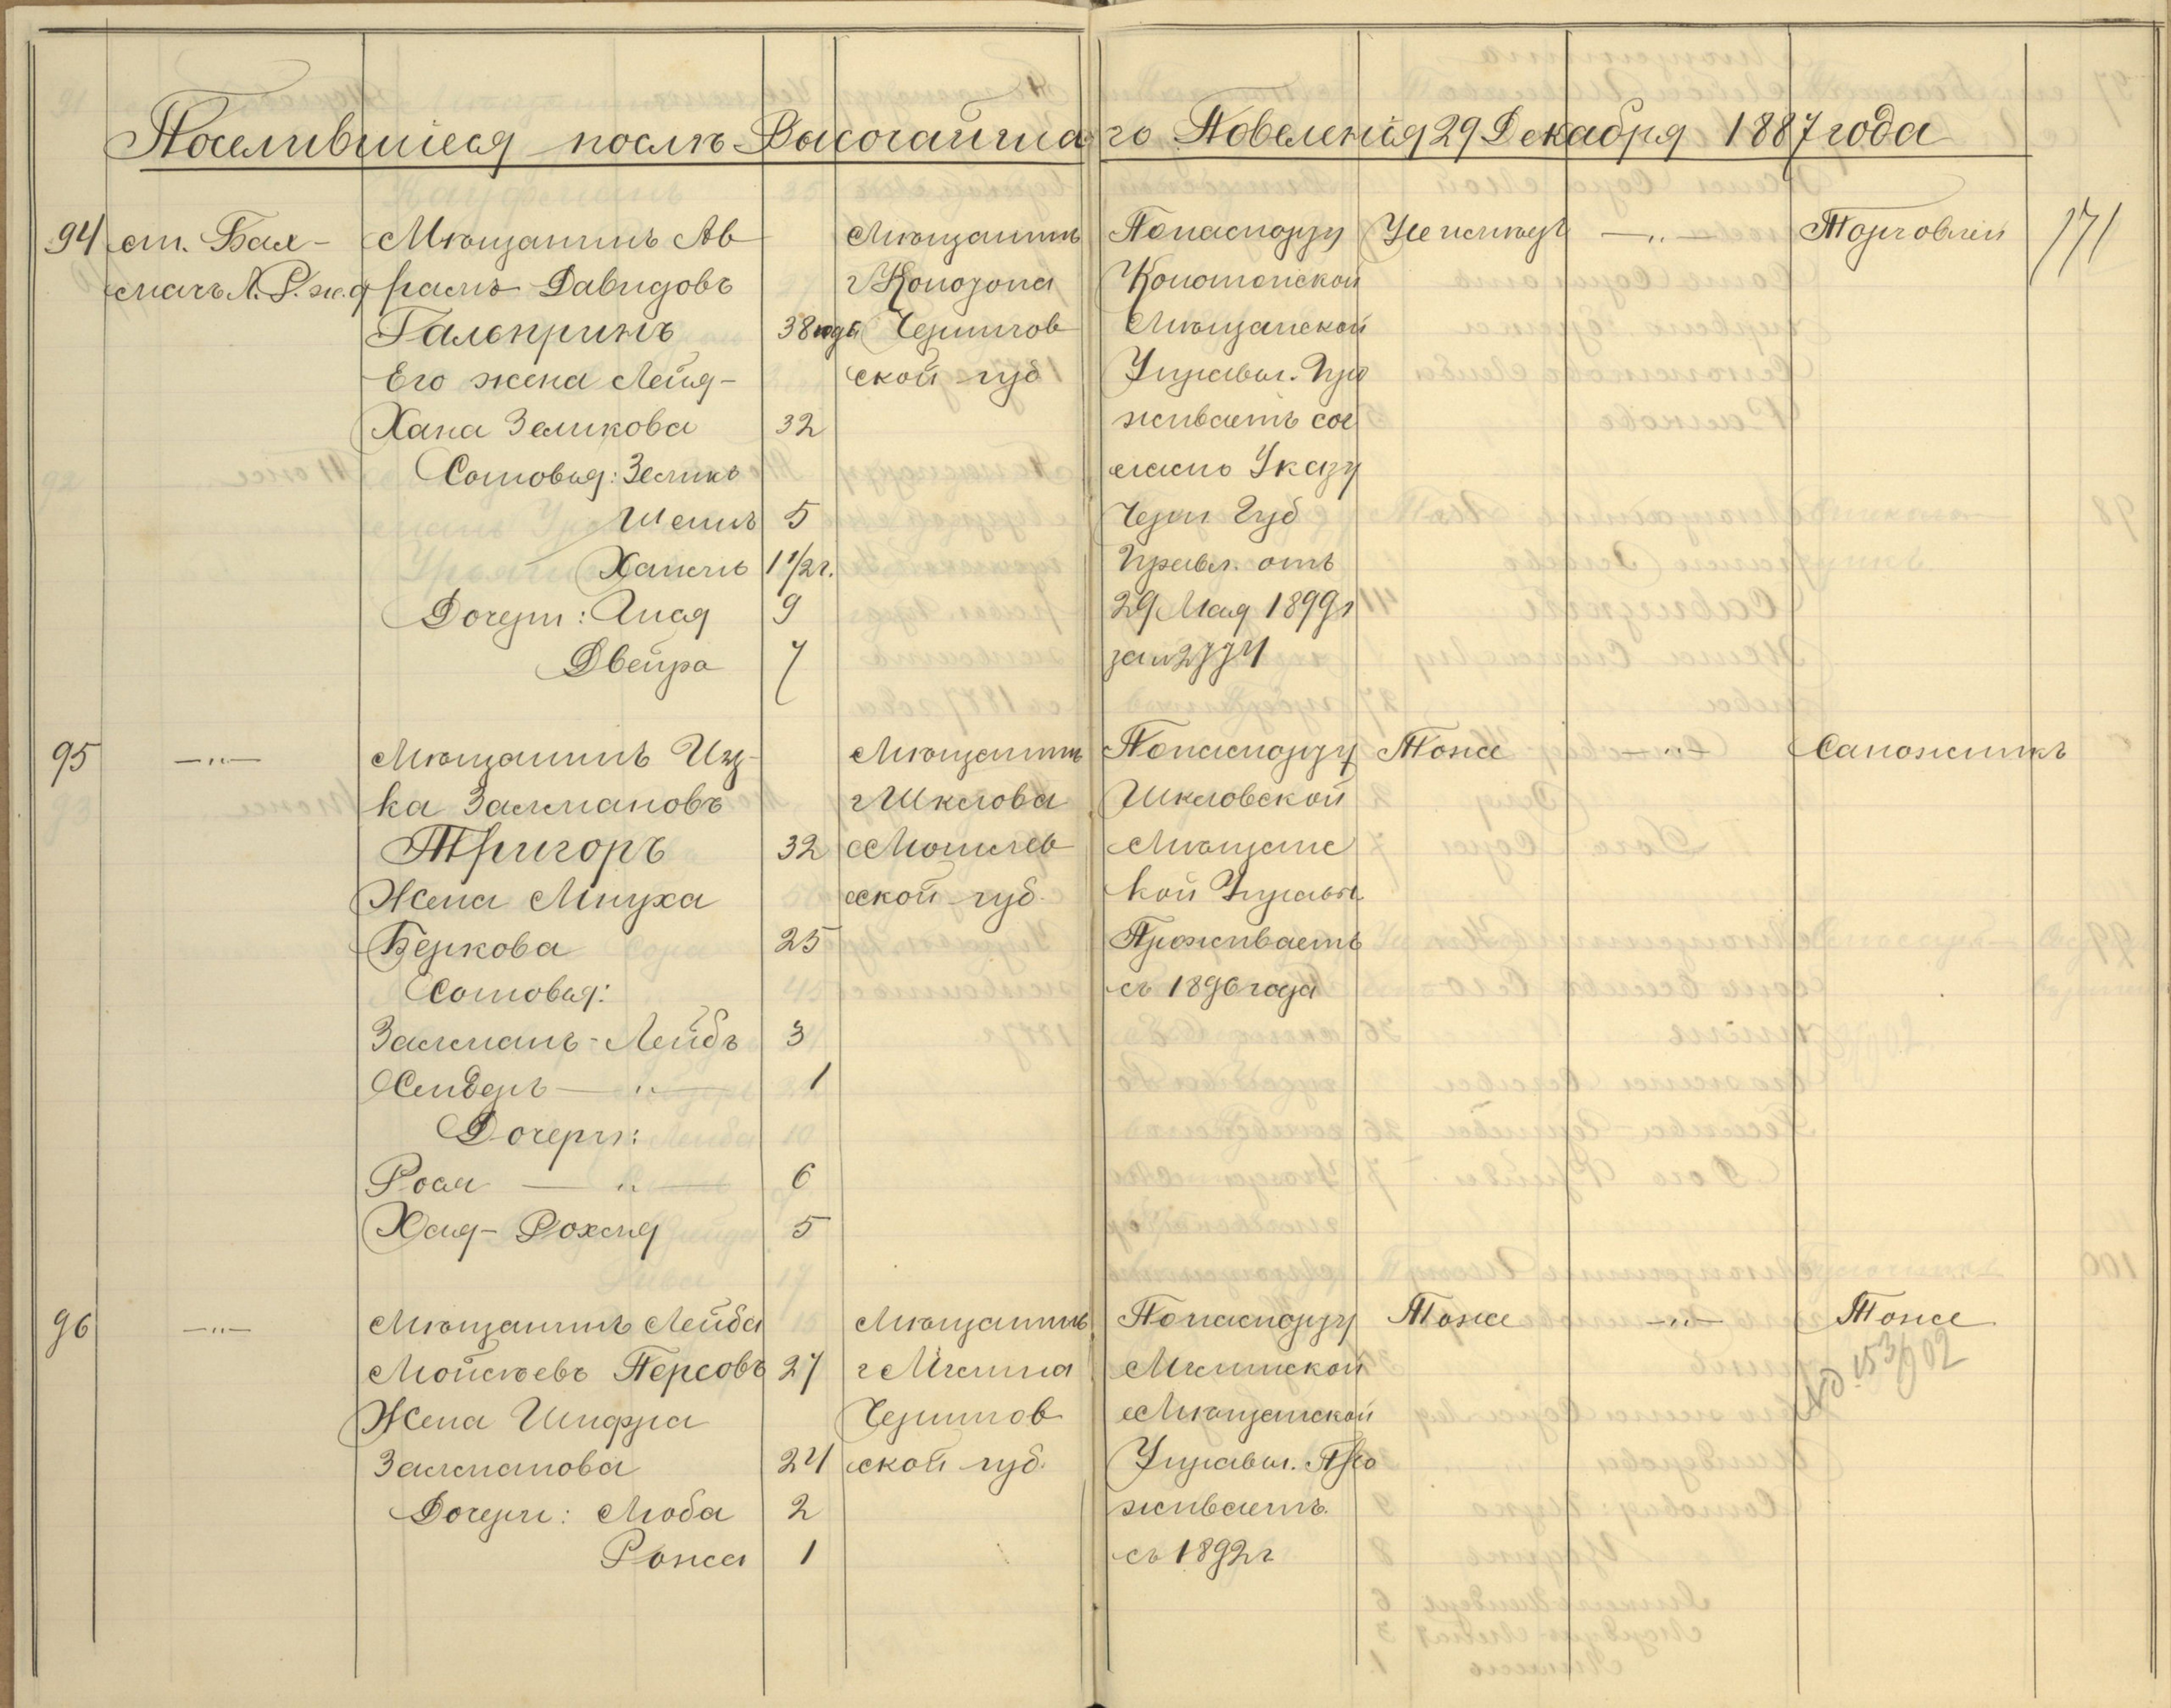 Поселившіеся послѣ Высочайшаго Повеленія 29 Декабря 1887 года
171
94
ст. Бах-
мачъ Л. Р. ж. д
Мѣщанинъ Ав
рамъ Давидовъ
Гальпринъ 38 годъ
Его жена Лейя-
Хана Зеликова 32
Сыновья: Зеликъ
Шенъ 5
Хаимъ 1 1/2 г.
Дочери: Хися 9
Двейра 7
Мѣщанинъ
г Конотопа
Чернигов
ской губ
По паспорту
Конотопской
Мѣщанской
Управы. Про
живаетъ сог
ласно Указу
Черн Губ
Правл. отъ
29 Мая 1899 г
за № 2774
Не имѣетъ
—„—
Торговлей
95
—„—
Мѣщанинъ Иц-
ка Залмановъ
Тригоръ 32
Жена Мнуха
Беркова 25
Сыновья:
Залманъ-Лейбъ 3
Сендеръ —„— 1
Дочери:
Роза —„— 6
Хая-Рохля 5
Мѣщанинъ
г Шклова
Могилев
ской губ.
По паспорту
Шкловской
Мѣщанс
кой Управы
Проживаетъ
съ 1896 года
Тоже
—„—
Сапожникъ
96
—„—
Мѣщанинъ Лейба
Мойсѣевъ Персовъ 27
Жена Шифра
Залманова 24
Дочери: Люба 2
Рониа 1
Мѣщанинъ
г Мглина
Чернигов
ской губ.
По паспорту
Мглинской
Мѣщанской
Управы. Про
живаетъ
съ 1892 г
Тоже
—„—
Тоже
№ 153/902